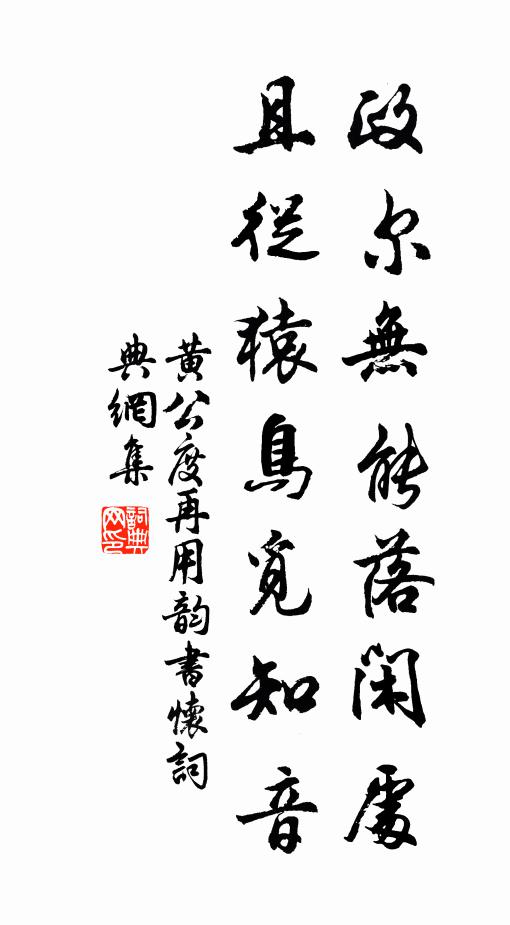 政尔無能落閑處
且從猿鳥覓知音
黄公度再用韵書懷詞
典網集
詞典網印